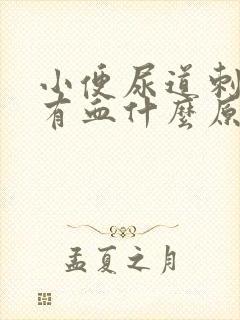 小便尿道刺
有血什麼原
孟夏之月